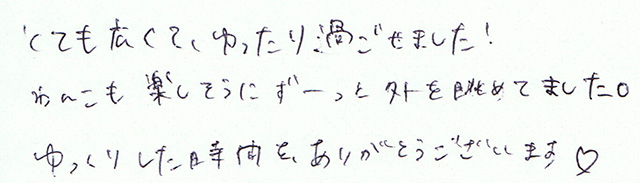 とても広くて、ゆったり過ごせました!
わんこも楽しそうにずーっと外を眺めてました。
ゆっくりした時間を、ありがとうございます♡